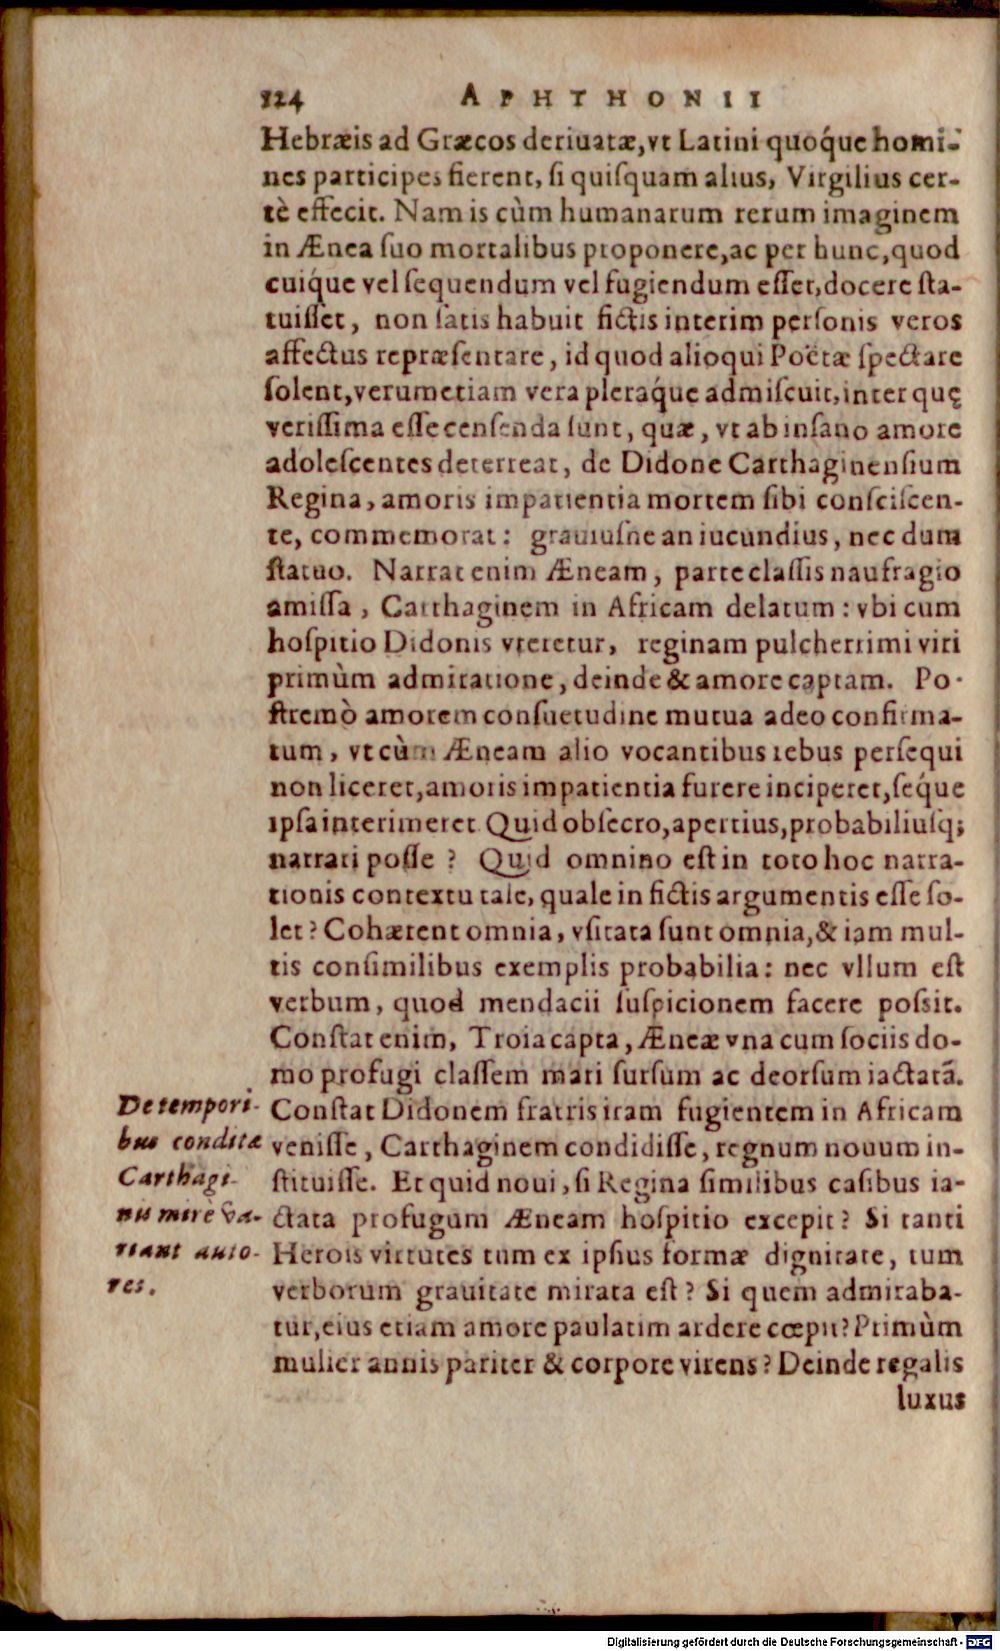 124 APHTHONII
Hebræis ad Græcos deriuatæ, vt Latini quoq́ue homi-
nes participes fierent, si quisquam alius, Virgilius cer-
tè effecit. Nam is cùm humanarum rerum imaginem
in Ænea suo mortalibus proponere, ac per hunc, quod
cuiq́ue vel sequendum vel fugiendum esset, docere sta-
tuisset, non satis habuit fictis interim personis veros
affectus repræsentare, id quod alioqui Poëtæ spectare
solent, verumetiam vera pleraq́ue admiscuit, inter quę
verissima esse censenda sunt, quæ, vt ab insano amore
adolescentes deterreat, de Didone Carthaginensium
Regina, amoris impatientia mortem sibi consciscen-
te, commemorat: grauiusne an iucundius, nec dum
statuo. Narrat enim Æneam, parte classis naufragio
amissa, Carthaginem in Africam delatum: vbi cum
hospitio Didonis vteretur, reginam pulcherrimi viri
primùm admiratione, deinde & amore captam. Po-
stremò amorem consuetudine mutua adeo confirma-
tum, vt cùm Æneam alio vocantibus rebus persequi
non liceret, amoris impatientia furere inciperet, seq́ue
ipsa interimeret Quid obsecro, apertius, probabiliusq;
narrari posse? Quid omnino est in toto hoc narra-
tionis contextu tale, quale in fictis argumentis esse so-
let? Cohærent omnia, vsitata sunt omnia, & iam mul-
tis consimilibus exemplis probabilia: nec vllum est
verbum, quod mendacii suspicionem facere possit.
Constat enim, Troia capta, Æneæ vna cum sociis do-
mo profugi classem mari sursum ac deorsum iactatā.
Constat Didonem fratris iram fugientem in Africam
venisse, Carthaginem condidisse, regnum nouum in-
stituisse. Et quid noui, si Regina similibus casibus ia-
ctata profugum Æneam hospitio excepit? Si tanti
Herois virtutes tum ex ipsius formæ dignitate, tum
verborum grauitate mirata est? Si quem admiraba-
tur, eius etiam amore paulatim ardere cœpit? Primùm
mulier annis pariter & corpore virens? Deinde regalis
luxus
De tempori-
bus conditæ
Carthagi-
nis mirè va-
riant auto-
res.
Digitalisierung gefördert durch die Deutsche Forschungsgemeinschaft - DFG